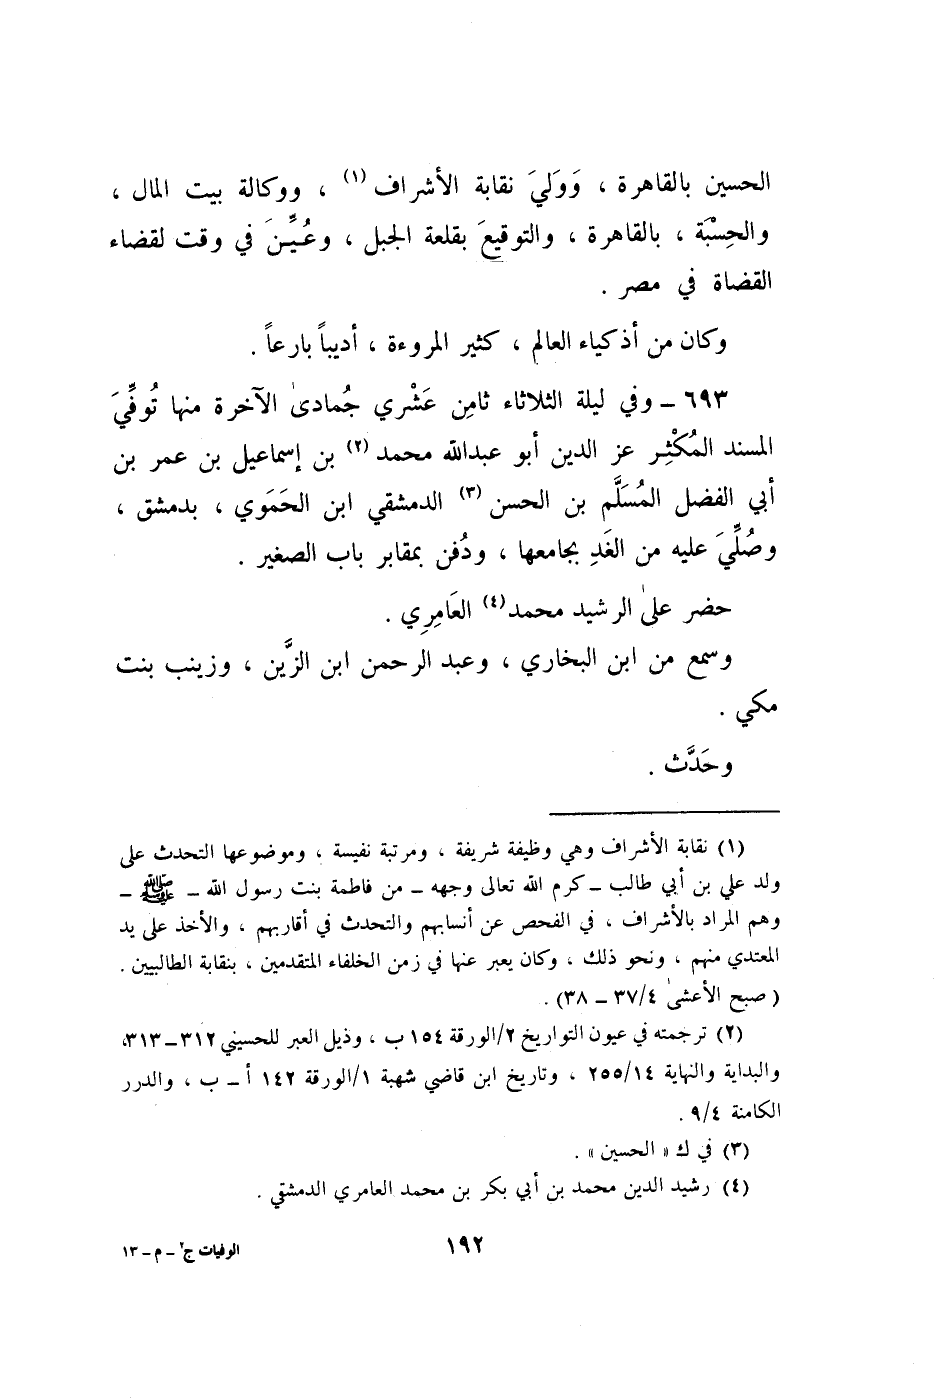 الحسين بالقاهرة ، وَوَليَ نقابة الأشراف (١) ، ووكالة بيت المال ،
والحِسْبَة ، بالقاهرة ، والتوقيعَ بقلعة الجبل ، وعُيِّنَ في وقت لقضاء
القضاة في مصر .
وكان من أذكياء العالم ، كثير المروءة ، أديباً بارعاً .
٦٩٣ ـ وفي ليلة الثلاثاء ثامِن عَشْري جُمادىٰ الآخرة منها تُوفِّيَ
المسند المُكْثِر عز الدين أبو عبدالله محمد (٢) بن إسماعيل بن عمر بن
أبي الفضل المُسَلَّم بن الحسن (٣) الدمشقي ابن الحَمَوي ، بدمشق ،
وصُلِّيَ عليه من الغَدِ بجامعها ، ودُفن بمقابر باب الصغير .
حضر علىٰ الرشيد محمد (٤) العَامِرِي .
وسمع من ابن البخاري ، وعبد الرحمن ابن الزَّين ، وزينب بنت
مكي .
وحَدَّث .
(١) نقابة الأشراف وهي وظيفة شريفة ، ومرتبة نفيسة ، وموضوعها التحدث على
ولد علي بن أبي طالب ـ كرم الله تعالى وجهه ـ من فاطمة بنت رسول الله ـ ﷺ ـ
وهم المراد بالأشراف ، في الفحص عن أنسابهم والتحدث في أقاربهم ، والأخذ على يد
المعتدي منهم ، ونحو ذلك ، وكان يعبر عنها في زمن الخلفاء المتقدمين ، بنقابة الطالبيين .
( صبح الأعشىٰ ٤/٣٧ ـ ٣٨) .
(٢) ترجمته في عيون التواريخ ٢/الورقة ١٥٤ ب ، وذيل العبر للحسيني ٣١٢ـ٣١٣،
والبداية والنهاية ١٤/٢٥٥ ، وتاريخ ابن قاضي شهبة ١/الورقة ١٤٢ أ ـ ب ، والدرر
الكامنة ٤/٩ .
(٣) في ك « الحسين » .
(٤) رشيد الدين محمد بن أبي بكر بن محمد العامري الدمشقي .
١٩٢
الوفيات ج٢ ـ م ـ ١٣